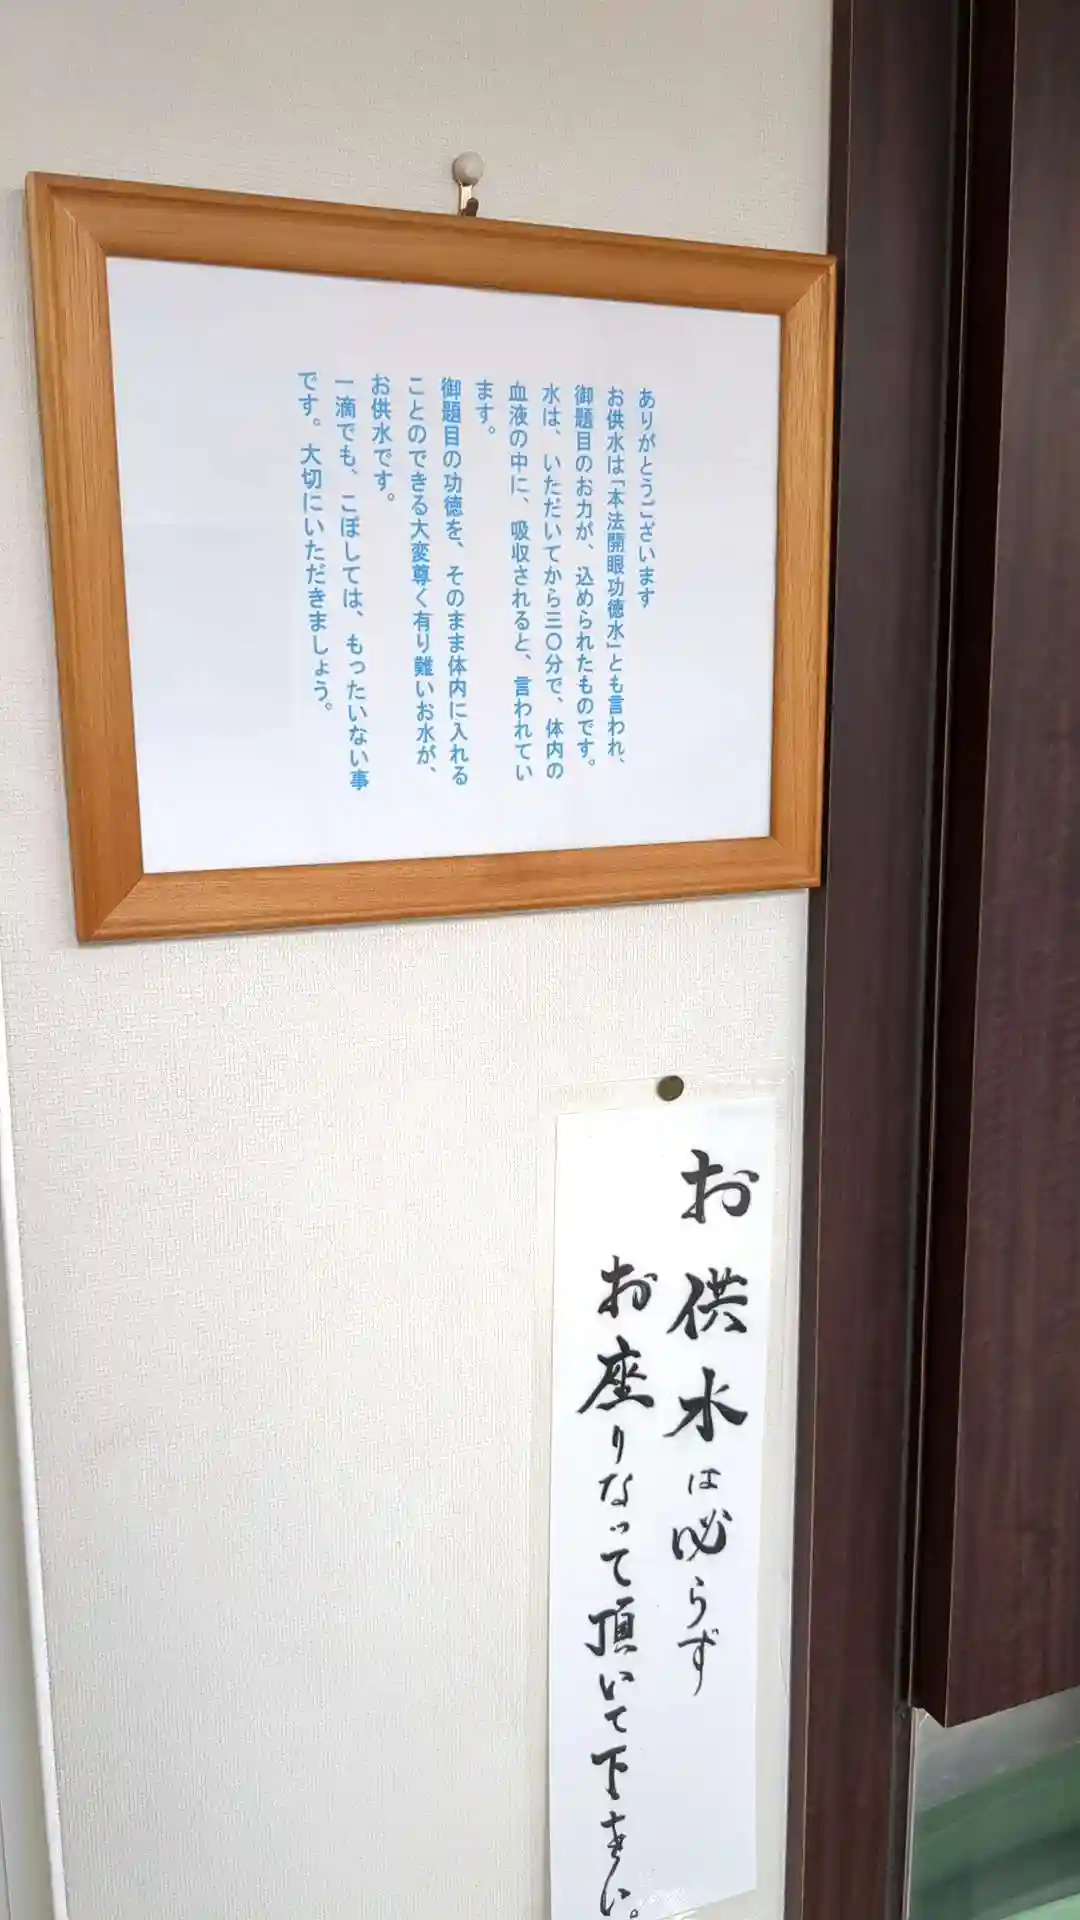 ありがとうございます
お供水は「本法開眼功徳水」とも言われ、
御題目のお力が、込められたものです。
水は、いただいてから三〇分で、体内の
血液の中に、吸収されると、言われてい
ます。
御題目の功徳を、そのまま体内に入れる
ことのできる大変尊く有り難いお水が、
お供水です。
一滴でも、こぼしては、もったいない事
です。大切にいただきましょう。
お供水は必らず
お座りなって頂いて下さい。